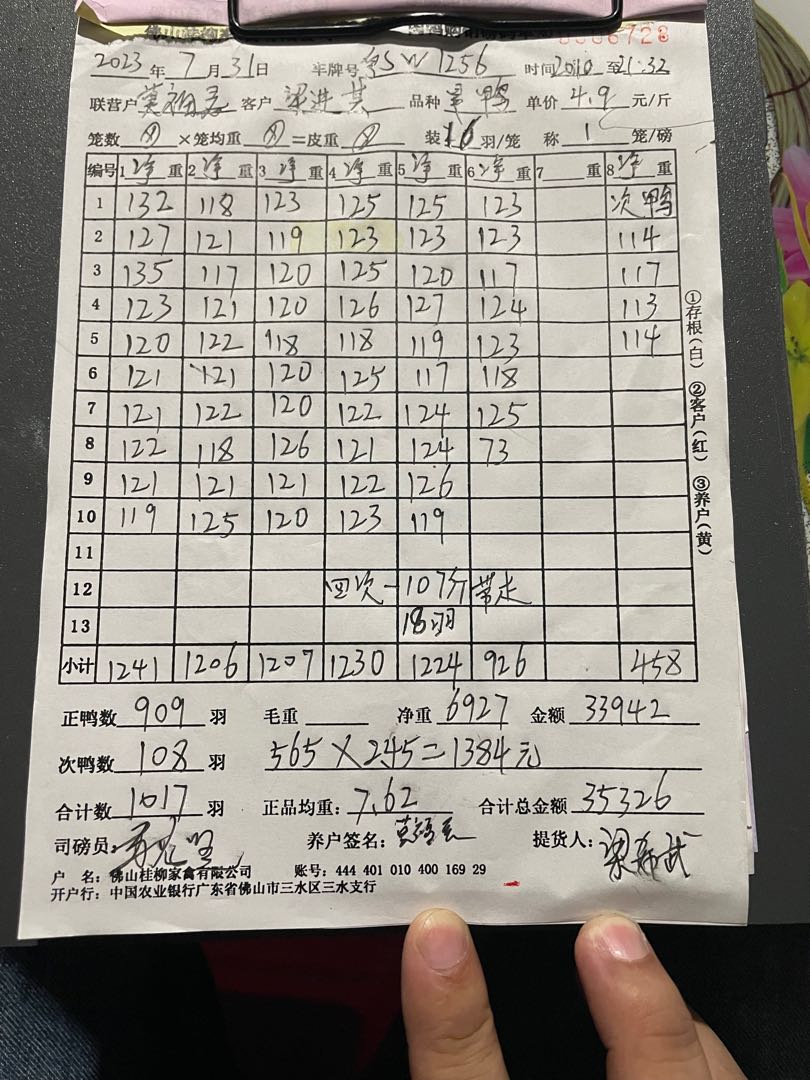 6728
2023年7月31日 车牌号 粤SW1256 时间20:10至21:32
联营户 客户 品种 单价4.9元/斤
笼数 ×笼均重 =皮重 装16羽/笼 称1笼/磅
编号 1净重 2净重 3净重 4净重 5净重 6净重 7 重 8净重
1 132 118 123 125 125 123 次鸭
2 127 121 119 123 123 123 114
3 135 117 120 125 120 117 117
4 123 121 120 126 127 124 113
5 120 122 118 118 119 123 114
6 121 121 120 125 117 118
7 121 122 120 122 124 125
8 122 118 126 121 124 73
9 121 121 121 122 126
10 119 125 120 123 119
11
12 四次-107斤 带走
13 18羽
小计 1241 1206 1207 1230 1224 926 458
①存根(白) ②客户(红) ③养户(黄)
正鸭数909羽 毛重 净重6927 金额33942
次鸭数108羽 565×2.45=1384元
合计数1017羽 正品均重:7.62 合计总金额35326
司磅员: 养户签名: 提货人:
户 名:佛山桂柳家禽有限公司 账号:444 401 010 400 169 29
开户行:中国农业银行广东省佛山市三水区三水支行